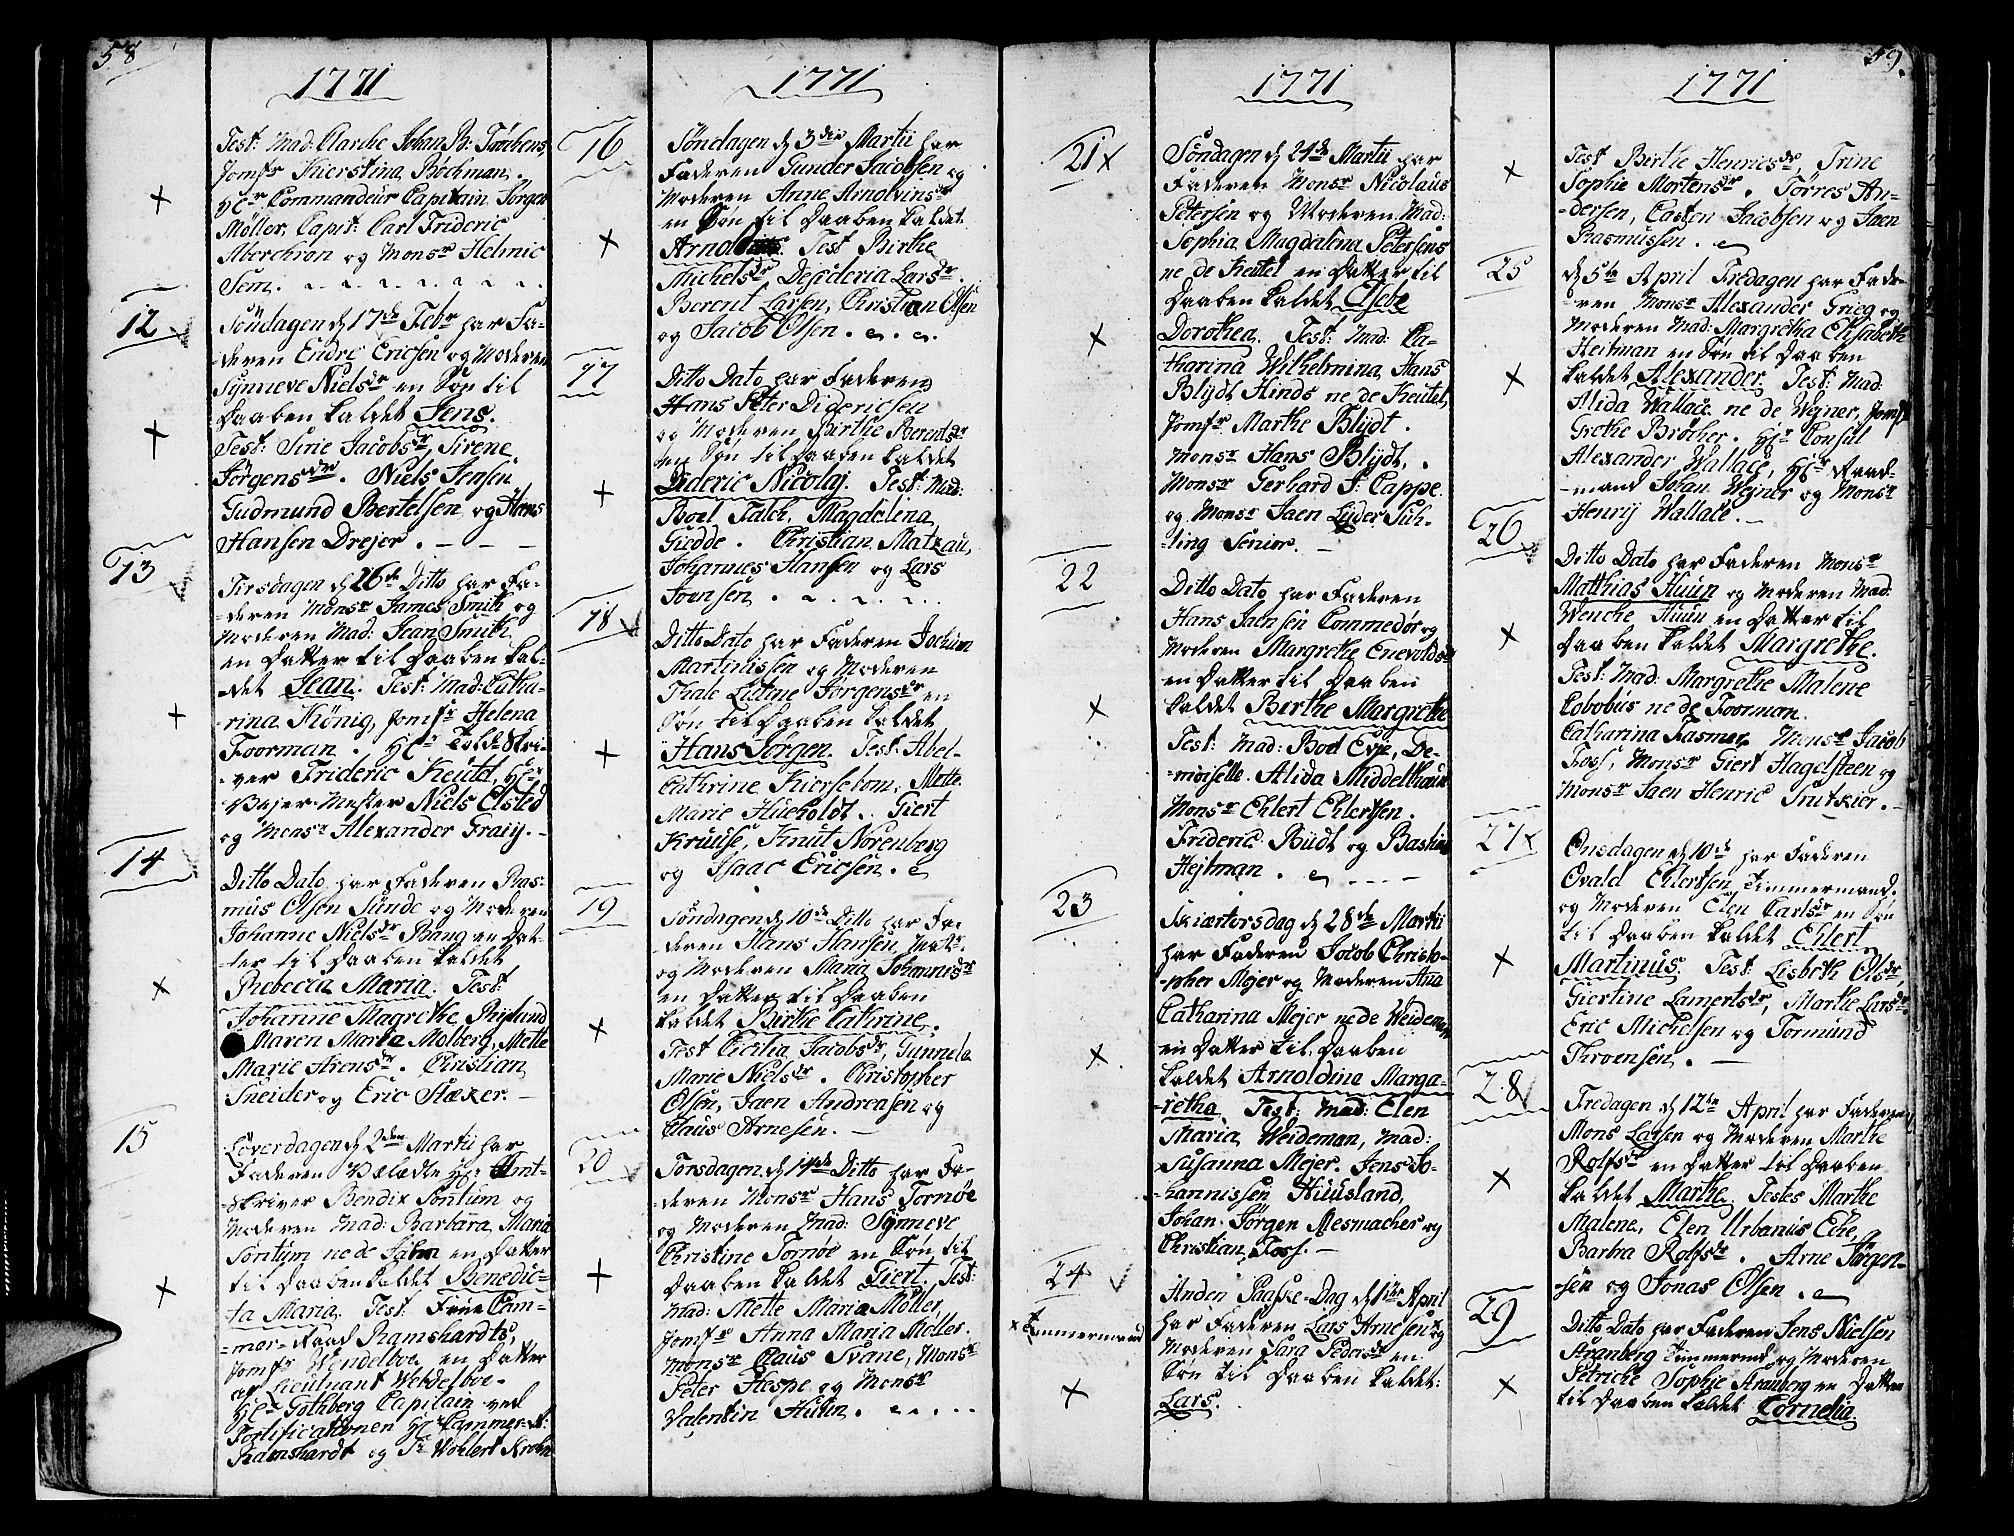 58
1771
Test: Mad: Clarche Johan B: Frøbens,
Jomfr Kierstina Bøchman.
Hr Commandeur Capitain Jørgen
Møller, Capit: Carl Frideric
Aberchron og Monsr Helmic
Sem.
12
Søndagen d 17de Febr har Fa-
-deren Endre Ericsen og Moderen
Synneve Nielsdr en Søn til
Daaben kaldet Jens.
Test: Sirie Jacobsdr, Sirene
Jørgensdr. Niels Jensen
Gudmund Bertelsen og Hans
Hansen Drejer.
13
Tirsdagen d 26de Ditto har Fa-
-deren Monsr James Smith og
Moderen Mad: Jean Smith
en Datter til Daaben kal-
-det Jean. Test: Mad: Catha-
-rina König, Jomfr Helena
Foorman. Hr Told-Skri-
-ver Frideric Keutel, Hr
Vejer-Mester Niels Elsted
og Monsr Alexander Graiy.
14
Ditto Dato har Faderen Ras-
mus Olsen Sunde og Moderen
Johanne Nielsdr Bang en Dat-
-ter til Daaben kaldet
Rebecca Maria. Test:
Johanne Magrethe Ryland
Maren Maria Molberg, Mette
Marie Arensdr. Christian
Sneider og Eric Stæxer.
15
Løverdagen d 2den Martii har
Faderen Hr Amt-
-skriver Bendix Sontum og
Moderen Mad: Barbara Maria
Sontum ne de Jahn en Datter
til Daaben kaldet Benedic-
-ta Maria. Test: Frue Cam-
-mer-Raad Ramshardts,
Jomfr Wendelboe en Datter
af Lieutnant Wendelboe.
Hr Gothberg Capitain ved
Fortificationen Hr Cammer-R:
Ramshardt og Sr Wohlert Krohn
1771
16
Søndagen d 3die Martii har
Faderen Gunder Jacobsen og
Moderen Anne Arnolvinsdr
en Søn til Daaben kaldet
Test Birthe
Michelsdr Desideria Larsdr.
Berent Larsen, Christian Olsen
og Jacob Olsen.
17
Ditto Dato har Faderen
Hans Peter Didericsen
og Moderen Birthe Berentsdr
en Søn til Daaben kaldet
Dideric Nicolaj. Test: Mad:
Boel Falch, Magdelina
Giedde. Christian Matzau,
Johannes Hansen og Lars
Svensen.
18
Ditto Dato har Faderen Jochum
Martinissen og Moderen
Thale Lutine Jørgensdr en
Søn til Daaben kaldet
Hans Jørgen. Test: Abel-
Cathrine Kiersebom, Mette
Marie Hueholdt. Giert
Kruuse, Knut Norenberg
og Isaac Ericsen.
19
Søndagen d 10de Ditto har Fa-
-deren Hans Hansen
og Moderen Maria Johannisdr
en Datter til Daaben
kaldet Birthe Cathrine.
Test Cecilia Jacobsdr, Gunnela
Marie Nielsdr. Christopher
Olsen, Jaen Andreasen og
Claus Arnesen.
20
Torsdagen d 14de Ditto har Fa-
-deren Monsr Hans Tornøe
og Moderen Mad: Synneve
Christine Tornøe en Søn til
Daaben kaldet Giert. Test:
Mad: Mette Maria Møller,
Jomfr Anna Maria Møller.
Monsr Claus Svane, Monsr
Peter Hespe og Monsr
Valentin Huen.
1771
21
Søndagen d 24de Martii har
Faderen Monsr Nicolaus
Petersen og Moderen Mad:
Sophia Magdalina Petersens
ne de Keutel en Datter til
Daaben kaldet Elsebe
Dorothea. Test: Mad: Ca-
tharina Wilhelmina, Hans
Blydt Hinds ne de Keutel,
Jomfr Marthe Blydt.
Monsr Hans Blydt,
Monsr Gerhard F: Cappe
og Monsr Jaen Lyder Suh-
-ling Senior.
22
Ditto Dato har Faderen
Hans Jansen Commedør og
Moderen Margrethe Enevoldsdr
en Datter til Daaben
kaldet Birthe Margrethe
Test: Mad: Boel Evje, De-
-moiselle Alida Middelthun
Monsr Ehlert Ehlertsen.
Frideric Büdt og Bastian
Hejtman.
23
Skiærtorsdag d 28de Martii
har Faderen Jacob Christo-
-pher Mejer og Moderen Ana
Catharina Mejer ne de Weideman
en Datter til Daaben
kaldet Arnoldina Marga-
-retha Test: Mad: Elen
Maria Weideman, Mad:
Susanna Mejer. Jens Jo-
-hannissen Huusland,
Johan Jørgen Mesmacher og
Christian Foss.
24
Anden Paaske-Dag d 1ste April
har Faderen Lars Arnesen x og
x Timmermand
Moderen Sara Pedersdr en
Søn til Daaben kaldet:
Lars.
59.
1771
Test Birthe Henricsdr, Trine
Sophie Mortensdr. Tørres An-
-dersen, Casten Jacobsen og Jaen
Rasmussen.
25
d 5te April Fredagen har Fade-
-ren Monsr Alexander Grieg og
Moderen Mad: Margretha Elisabeth
Heitman en Søn til Daaben
kaldet Alexander. Test: Mad:
Alida Wallace ne de Wejner, Jomfr
Grethe Brøcher. Hr Consul
Alexander Wallace, Hr Raad-
-mand Johan Wejner og Monsr
Henrij Wallace.
26
Ditto Dato har Faderen Monsr
Matthias Huun og Moderen Mad:
Wenche Huun en Datter til
Daaben kaldet Margrethe.
Test: Mad: Margrethe Malene
Cobobus ne de Foorman.
Catharina Fasmer, Monsr Jacob
Foss, Monsr Giert Hagelsteen og
Monsr Jaen Henric Trutzier.
27
Onsdagen d 10de har Faderen
Ovald Ehlertsen Timmermand
og Moderen Elen Carlsdr en Søn
til Daaben kaldet Ehlert
Martinus. Test: Lisbeth Olsdr,
Giertine Lamertsdr, Marthe Larsdr.
Eric Michelsen og Tormund
Throensen.
28
Fredagen d 12te April har Faderen
Mons Larsen og Moderen Marthe
Rolfsdr en Datter til Daaben
kaldet Marthe. Testes Marthe
Malene, Elen Urbanus Eche,
Barbra Rolfsdr. Arne Jørgen-
sen og Jonas Olsen.
29
Ditto Dato har Faderen Jens Nielsen
Stranberg Timmermd og Moderen
Petriche Sophie Stranberg en Datter
til Daaben kaldet Cornelia